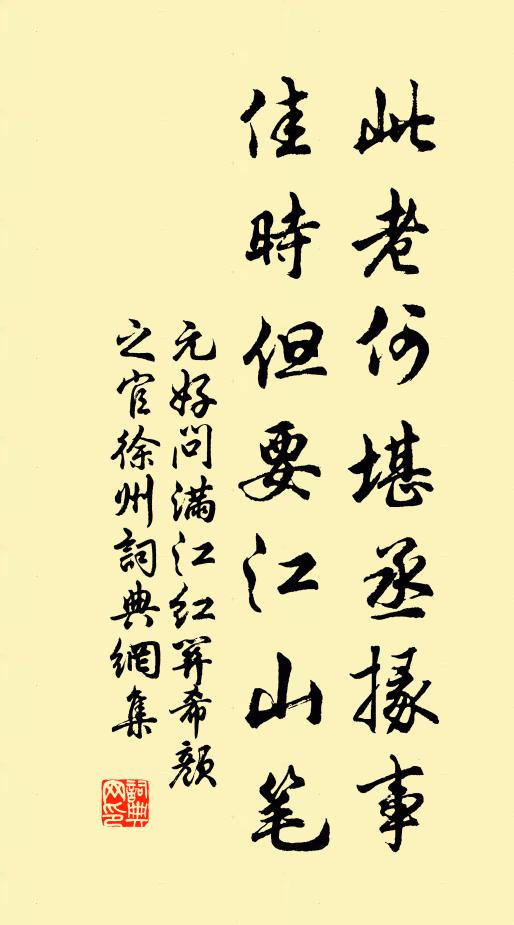 此老何堪丞掾事
佳時但要江山笔
元好問滿江紅希顏
之官徐州詞典網集
詞典
网印